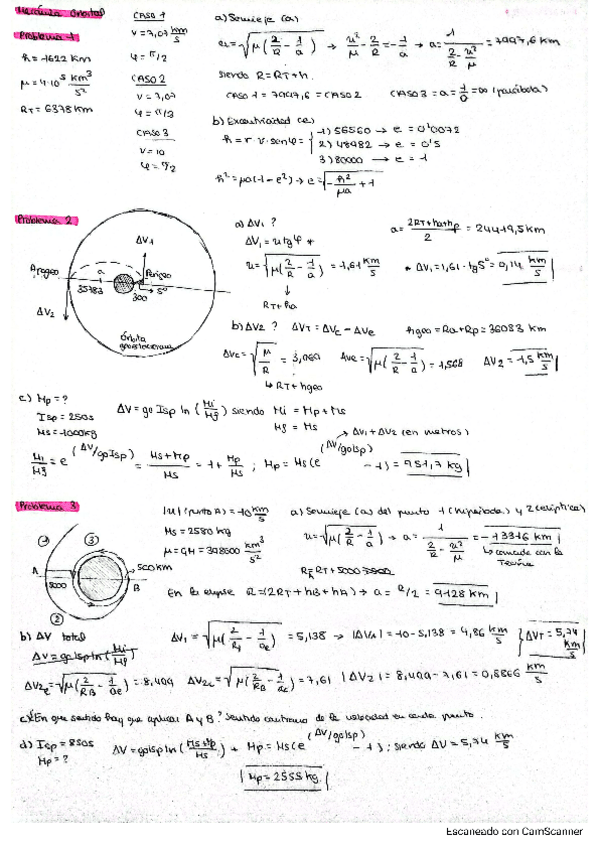 Mecánica Orbital
Problema 1
h = 1622 km
μ = 4·10⁵ km³/s²
RT = 6378 km
CASO 1
V = 7,07 km/s
φ = π/2
CASO 2
V = 7,07
φ = π/3
CASO 3
V = 10
φ = π/2
a) Semieje (a)
u = √μ(2/R - 1/a) → u²/μ - 2/R = -1/a → a = 1/(2/R - u²/μ) = 7997,6 km
siendo R = RT + h.
CASO 1 = 7997,6 = CASO 2 CASO 3 = a = 1/0 = ∞ (parábola)
b) Excentricidad (e)
h = r · v · senφ =
1) 56560 → e = 0'0072
2) 48982 → e = 0'5
3) 80000 → e = 1
h² = μa(1 - e²) → e = √-h²/μa + 1
Problema 2
ΔV1
Apogeo
a
Perigeo
35783
300
5°
ΔV2
Órbita
geoestacionaria
a) ΔV1 ?
ΔV1 = u tgφ *
u = √μ(2/R - 1/a) = 1,61 km/s
RT + ha
a = (2RT + ha + hp)/2 = 24419,5 km
* ΔV1 = 1,61 · tg5° = 0,14 km/s
b) ΔV2 ? ΔVT = ΔVc - ΔVe
ΔVc = √μ/R = 3,069
RT + hgeo
ΔVe = √μ(2/R - 1/a) = 1,568 ΔV2 = 1,5 km/s
c) Mp = ?
Isp = 250s
Ms = 1000kg
ΔV = go Isp ln (Mi/Mf) siendo Mi = Mp + Ms
Mf = Ms
ΔV1 + ΔV2 (en metros)
Mi/Mf = e^(ΔV/goIsp) = (Ms + Mp)/Ms = 1 + Mp/Ms ; Mp = Ms(e^(ΔV/goIsp) - 1) = 951,7 kg
Problema 3
① ③
500km
A
5000
B
②
|u| (punto A) = 10 km/s
Ms = 2580 kg
μ = GM = 398600 km³/s²
a) Semieje (a) del punto 1 (hipérbola) y 2 (elíptica)
u = √μ(2/R - 1/a) → a = 1/(2/R - u²/μ) = -13316 km
coincide con la
Teoría
RA = RT + 5000
En la elipse R = (2RT + hB + hA) → a = R/2 = 9128 km
b) ΔV total
ΔV = goIspln(Mi/Mf)
ΔV1 = √μ(2/R1 - 1/ae) = 5,138 → |ΔV1| = 10 - 5,138 = 4,86 km/s
ΔVT = 5,74 km/s
ΔV2e = √μ(2/RB - 1/ae) = 8,499 ΔV2c = √μ(2/RB - 1/ac) = 7,61 |ΔV2| = 8,499 - 7,61 = 0,8866 km/s
c) ¿En que sentido hay que aplicar A y B? Sentido contrario de la velocidad en cada punto.
d) Isp = 850s
Mp = ?
ΔV = goIspln((Ms+Mp)/Ms) → Mp = Ms(e^(ΔV/goIsp) - 1) ; siendo ΔV = 5,74 km/s
Mp = 2555 kg.
Escaneado con CamScanner